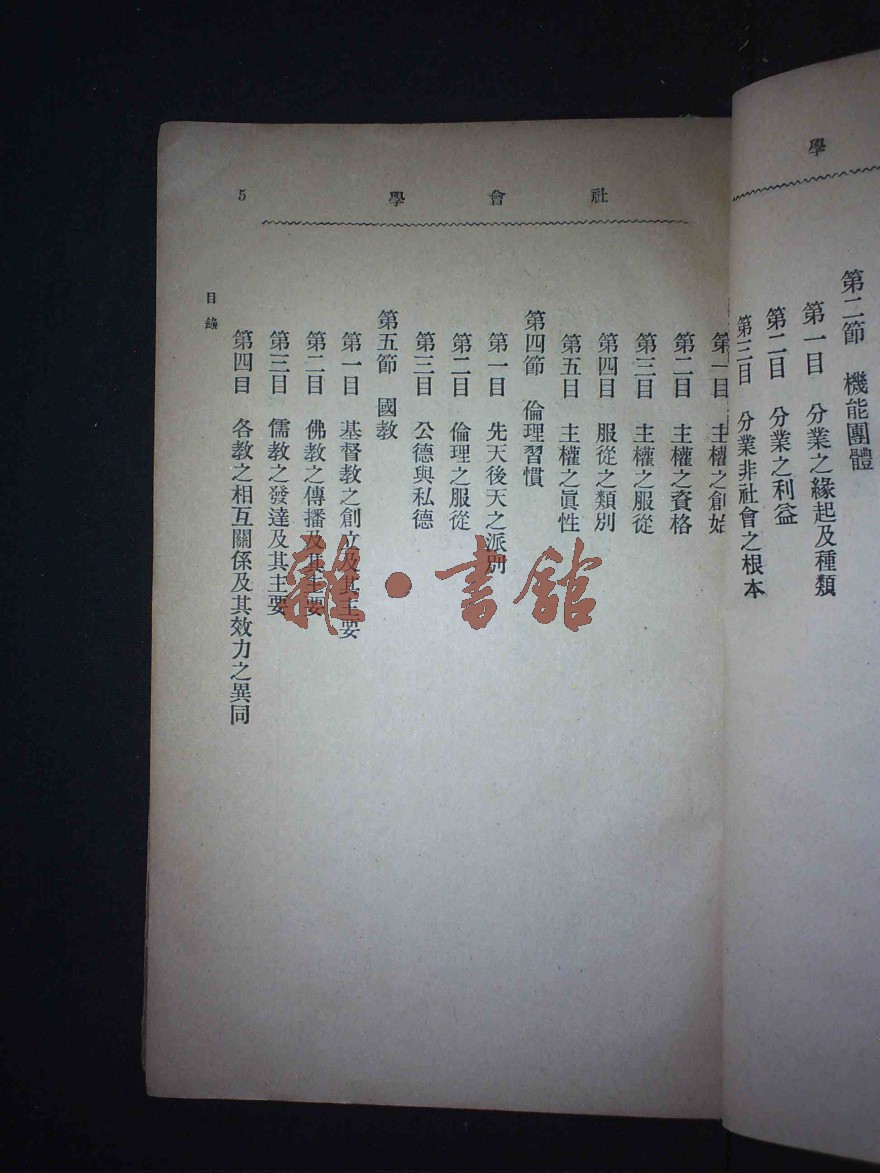 學
第二節　機能團體
第一目　分業之緣起及種類
第二目　分業之利益
第三目　分業非社會之根本
社會學
5
第一目　主權之創始
第二目　主權之資格
第三目　主權之服從
第四目　服從之類別
第五目　主權之眞性
第四節　倫理習慣
第一目　先天後天之派別
第二目　倫理之服從
第三目　公德與私德
第五節　國教
第一目　基督教之創立及其主要
第二目　佛教之傳播及其主要
第三目　儒教之發達及其主要
第四目　各教之相互關係及其效力之異同
目錄
雜·書館